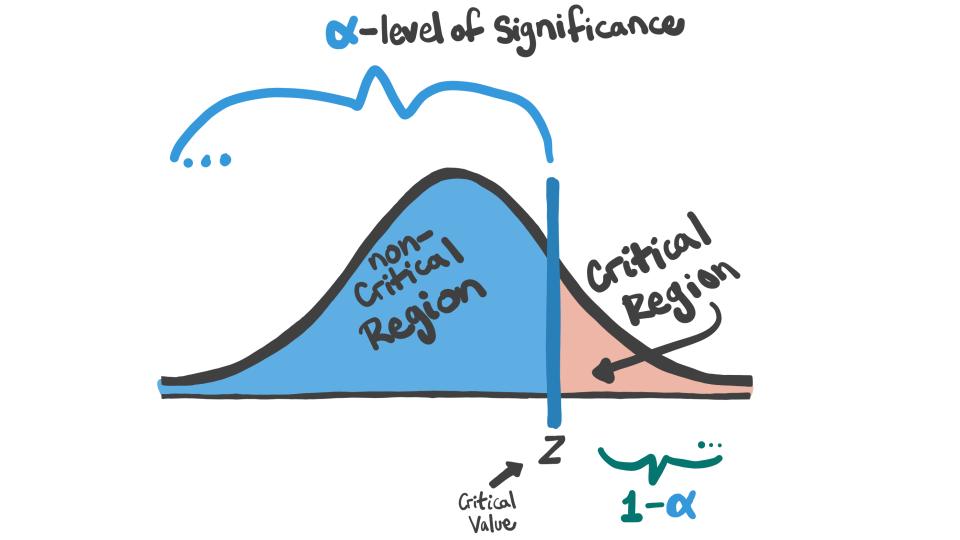 α-level of Significance
non-
Critical
Region
Critical
Region
Z
Critical
Value
1-α